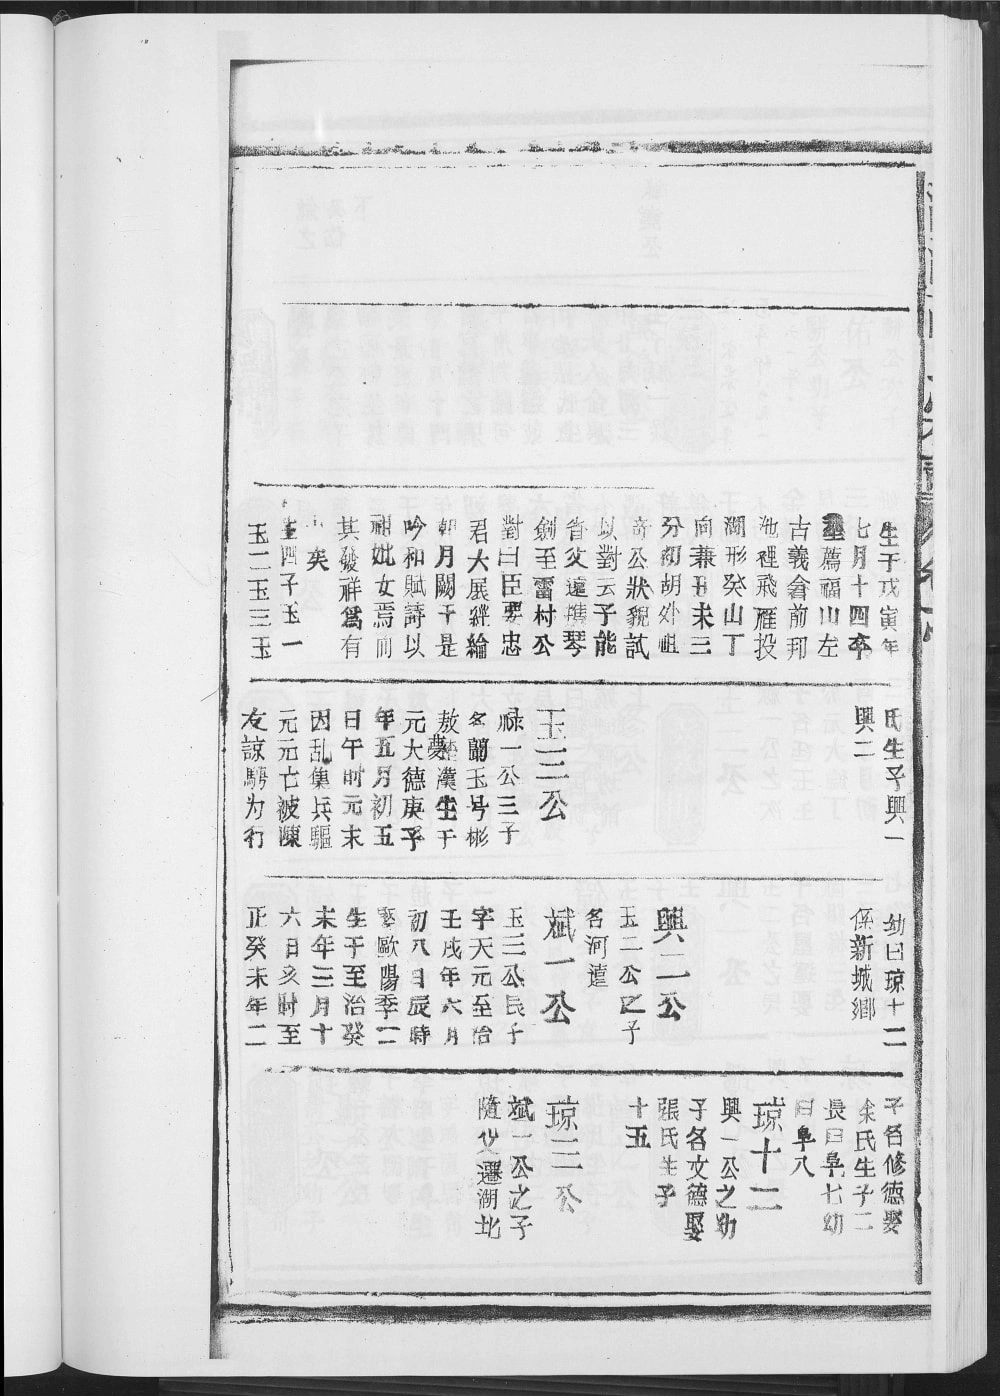 生于戊寅年
七月十四卒
塟薦福山左
古義倉前邦
池裡飛雁投
湖形癸山丁
向兼丑未三
分初胡外祖
奇公狀貌試
以對云子能
省父遠携琴
劍至雷村公
對曰臣要忠
君大展經綸
朝月闕于是
吟和賦詩以
祖妣女焉而
其發祥爲有
矣
生四子玉一
玉二玉三玉
氏生子興一
興二
玉三公
祿一公三子
名蘭玉号彬
敖夢漢生于
元大德庚子
年五月初五
日午时元末
因乱集兵驅
元元亡被陳
友諒騁为行
幼曰琼十二
係新城鄉
興二公
玉二公之子
名河遠
斌一公
玉三公民子
字天元至治
壬戌年六月
初八日辰時
娶歐陽季二
生于至治癸
未年三月十
六日亥时至
正癸未年二
子名修德娶
余氏生子二
長曰阜七幼
曰阜八
琼十二
興一公之幼
子名文德娶
張氏生子
十五
琼三公
斌一公之子
隨父遷湖北